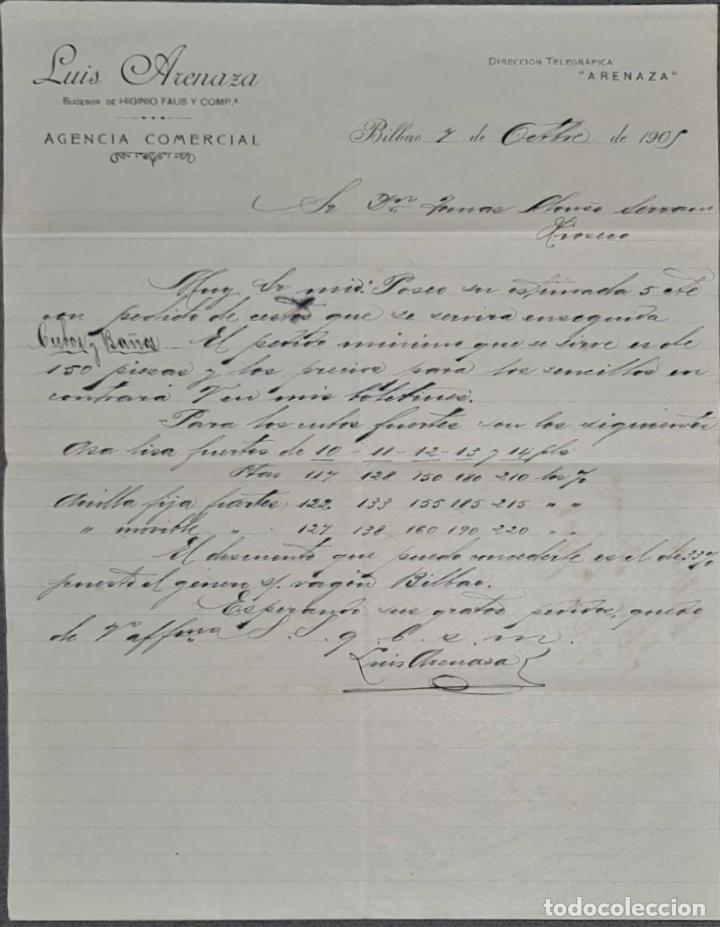 Luis Arenaza
SUCESOR DE HIGINIO FAUS Y COMP.ª
AGENCIA COMERCIAL
DIRECCIÓN TELEGRÁFICA:
"ARENAZA"
Bilbao 7 de Octbre de 1905
Sr Dn Tomas Alonso Serrano
Rioseco
Muy Sr mio: Poseo su estimada 5 
con pedido de cestos que se servirá enseguida
Cubos y Baños El pedido minimo que se sirve es de
150 piezas y los precios para los sencillos en
contrará V en mis boletines.
Para los cubos fuertes son los siguientes
Asa lisa fuertes de 10 - 11 - 12 - 13 y 14 pls
Ptas 117 128 150 180 210 los %
Anilla fija fuertes 122. 133 155 185 215 " "
" movible " 127 138 160 190 220 " "
El descuento que puedo concederle es el de 33 %
puesto el género s/. vagón Bilbao.
Esperando sus gratos pedidos, quedo
de V affmo S. S. q b. s. m.
Luis Arenaza
todocoleccion